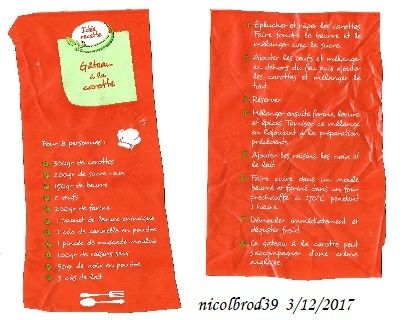 Idée
recette
Gâteau
à la
carotte
Pour 8 personnes :
300gr de carottes
200gr de sucre roux
150gr de beurre
2 œufs
200gr de farine
1 sachet de levure chimique
1 càs de cannelle en poudre
1 pincée de muscade moulue
100gr de raisins secs
50gr de noix en poudre
3 càs de lait
Eplucher et râper les carottes.
Faire fondre le beurre et le
mélanger avec le sucre.
Ajouter les œufs et mélanger
en dehors du feu puis ajouter
les carottes et mélanger le
tout.
Réserver
Mélanger ensuite farine, levure
et épices. Tamiser ce mélange
en l'ajoutant à la préparation
précédente.
Ajouter les raisins, les noix et
le lait.
Faire cuire dans un moule
beurré et fariné dans un four
préchauffé à 170°C pendant
1 heure.
Démouler immédiatement et
déguster froid.
Ce gâteau à la carotte peut
s'accompagner d'une crème
anglaise.
nicolbrod39 3/12/2017